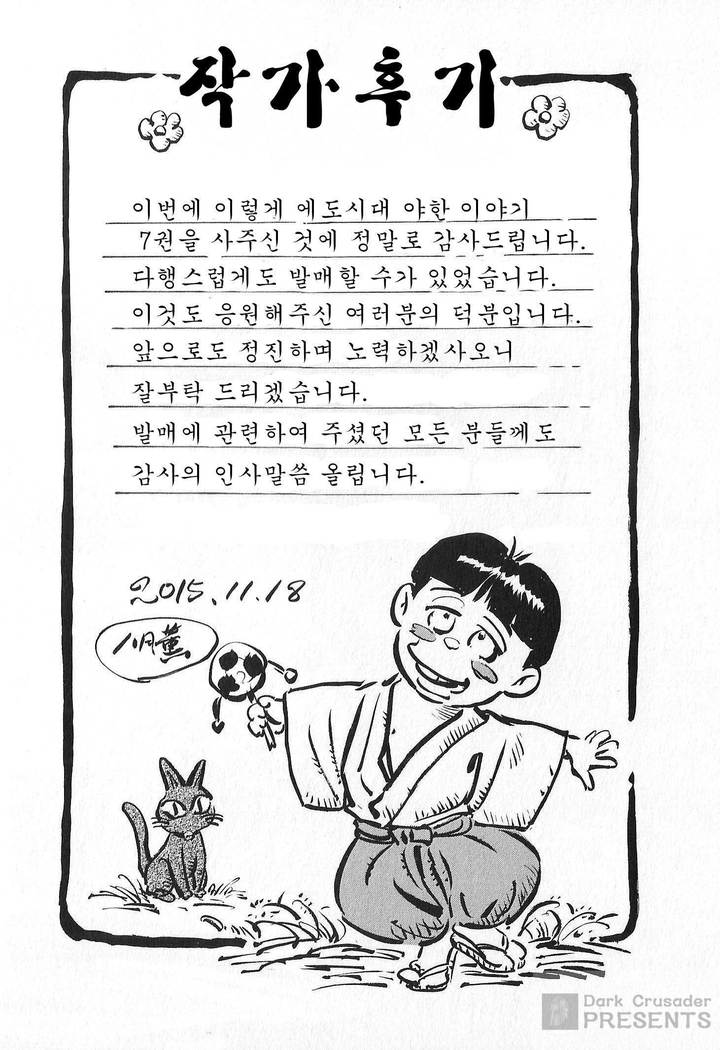 작가후기
이번에 이렇게 에도시대 야한 이야기
7권을 사주신 것에 정말로 감사드립니다.
다행스럽게도 발매할 수가 있었습니다.
이것도 응원해주신 여러분의 덕분입니다.
앞으로도 정진하며 노력하겠사오니
잘부탁 드리겠습니다.
발매에 관련하여 주셨던 모든 분들께도
감사의 인사말씀 올립니다.
2015.11.18
八月薫
Dark Crusader
PRESENTS